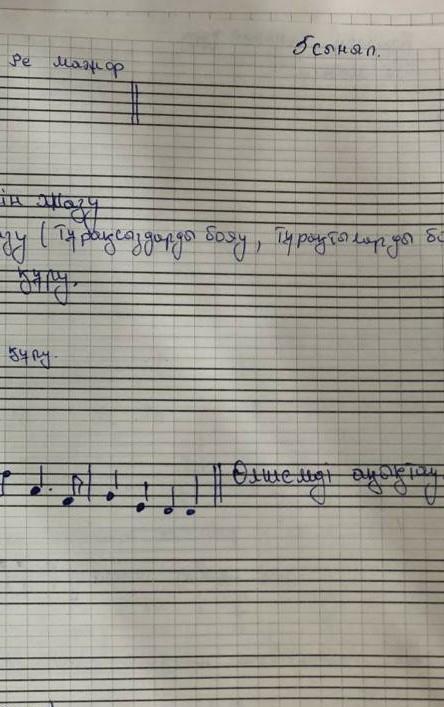 5 сынап.
Ре мажор
ін жазу
зу (тұрақсыздарды бояу, тұрақтыларды бо
құру.
құру.
Өлшемді анықтау